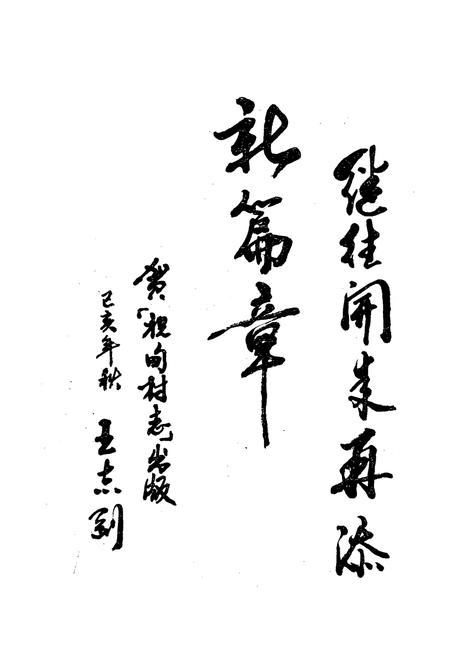 继往开来再添
新篇章
贺「祝甸村志」出版
己亥年秋 王志刚